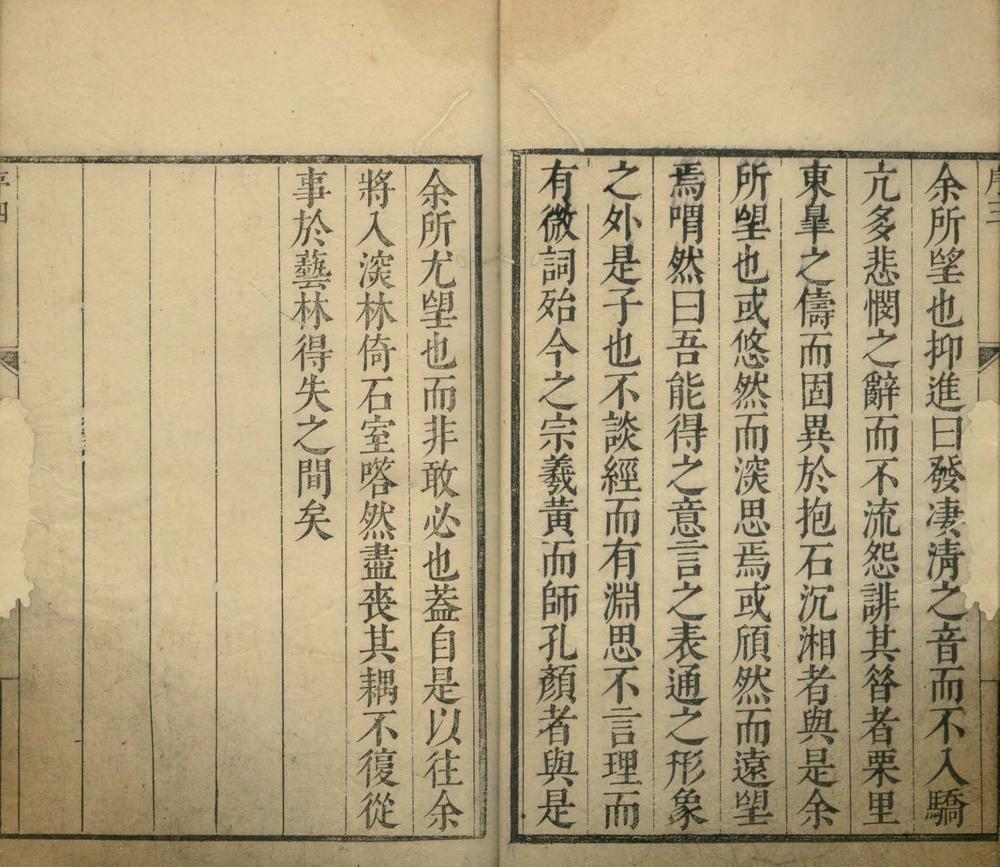 序三
余所望也抑進曰發凄清之音而不入驕
亢多悲憫之辭而不流怨誹其昝者栗里
東臯之儔而固異於抱石沉湘者與是余
所望也或悠然而深思焉或頎然而遠望
焉喟然曰吾能得之意言之表通之形象
之外是子也不談經而有淵思不言理而
有微詞殆今之宗羲黃而師孔顏者與是
余所尤望也而非敢必也葢自是以往余
將入深林倚石室嗒然盡喪其耦不復從
事於藝林得失之間矣
序四